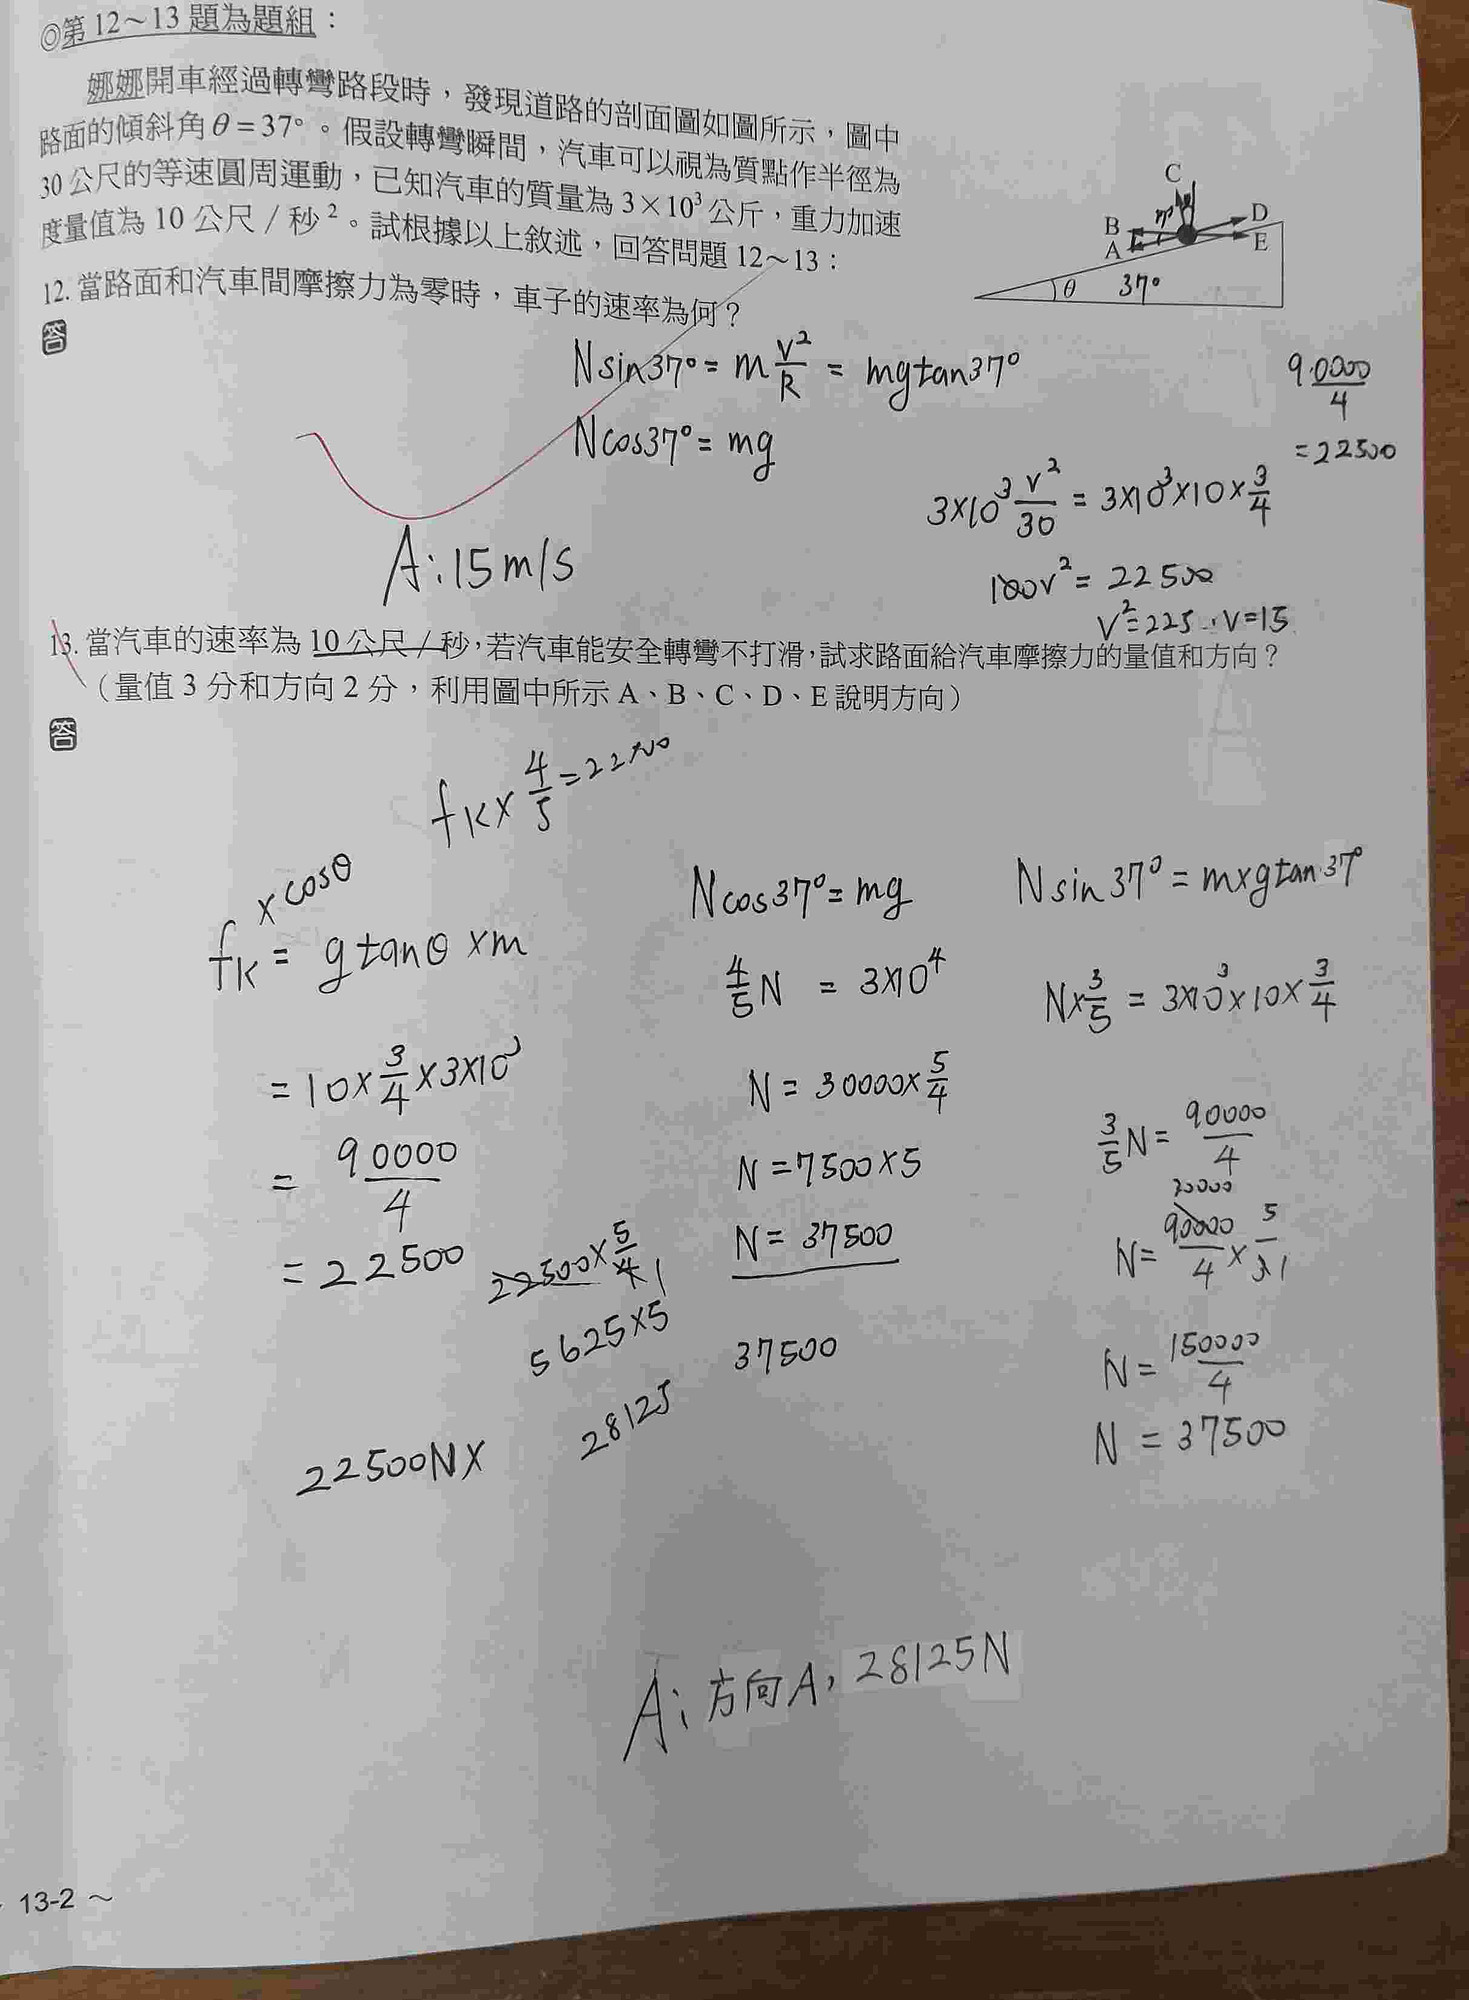 ◎第12～13題為題組：
娜娜開車經過轉彎路段時，發現道路的剖面圖如圖所示，圖中
路面的傾斜角θ=37°。假設轉彎瞬間，汽車可以視為質點作半徑為
30公尺的等速圓周運動，已知汽車的質量為3×10³公斤，重力加速
度量值為10公尺/秒²。試根據以上敘述，回答問題12～13：
C
B
A
D
E
θ 37°
12. 當路面和汽車間摩擦力為零時，車子的速率為何？
答
Nsin37°= m v²/R = mgtan37°
Ncos37°= mg
90000/4
=22500
3×10³ v²/30 = 3×10³×10×3/4
100v²= 22500
v²=225 ∴v=15
A:15m/s
13. 當汽車的速率為10公尺/秒，若汽車能安全轉彎不打滑，試求路面給汽車摩擦力的量值和方向？
（量值3分和方向2分，利用圖中所示A、B、C、D、E說明方向）
答
fk× 4/5 =22500
fk ×cosθ = gtanθ×m
= 10×3/4×3×10³
= 90000/4
= 22500
22500×5/4 1
5625×5
28125
22500N×
Ncos37°= mg
4/5 N = 3×10⁴
N = 30000×5/4
N =7500×5
N= 37500
37500
Nsin37°= m×gtan37°
N×3/5 = 3×10³×10×3/4
3/5 N= 90000/4
30000
N= 90000/4 × 5/3 1
N= 150000/4
N = 37500
A: 方向A，28125N
13-2 ～